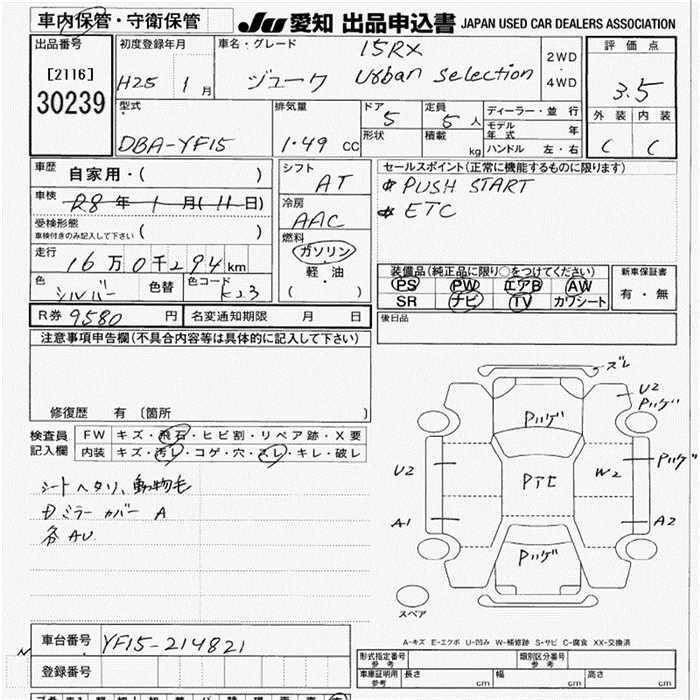 車内保管・守衛保管
JU 愛知 出品申込書 JAPAN USED CAR DEALERS ASSOCIATION
出品番号
[2116]
30239
初度登録年月
H25 1 月
車名・グレード
15RX
ジューク Urban selection
2WD
・
4WD
評価点
3.5
外装 内装
C C
型式
DBA-YF15
排気量
1.49 cc
ドア
5
定員
5 人
形状
積載
kg
ディーラー・並行
モデル年式 年
ハンドル 左・右
車歴
自家用・( )
車検
28 年 1 月 (11日)
受検形態
車検付きのみ記入して下さい ( )
走行
16万0千294km
色
シルバー
色替
色コード
K23
シフト
AT
冷房
AAC
燃料
ガソリン
・
軽・油
( )
セールスポイント(正常に機能するものに限ります)
# PUSH START
# ETC
装備品(純正品に限り○をつけてください)
PS PW エアB AW
SR ナビ TV カワシート
新車保証書
有・無
R券 9580 円
名変通知期限 月 日
後日品
注意事項申告欄(不具合内容等は具体的に記入して下さい)
修復歴 有〔箇所 〕
検査員
記入欄
FW キズ・飛石・ヒビ割・リペア跡・X要
内装 キズ・汚レ・コゲ・穴・スレ・キレ・破レ
シートヘタリ、動物毛
Dミラーカバー A
各AU
ズレ
U2
Pハゲ
Pハゲ
U2
PTE
W2
Pハゲ
A1
A2
Pハゲ
スペア
A-キズ E-エクボ U-凹み W-補修跡 S-サビ C-腐食 XX-交換済
車台番号
YF15-214821
登録番号
形式指定番号
参考
類別区分番号
参考
車庫証明用
参考
長さ cm
幅 cm
高さ cm